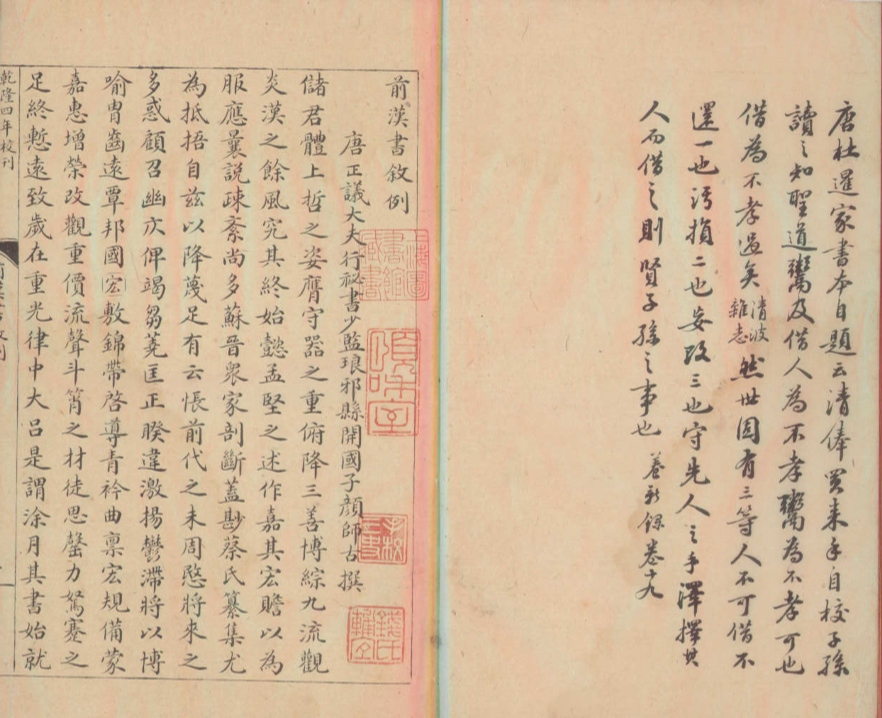 唐杜暹家書本自題云清俸買來手自校子孫
讀之知聖道鬻及借人為不孝鬻為不孝可也
借為不孝過矣清波雜志然世固有三等人不可借不
還一也污損二也妄改三也守先人之手澤擇其
人而借之則賢子孫之事也養新錄卷十九
前漢書敘例
唐正議大夫行祕書少監琅邪縣開國子顏師古撰
儲君體上哲之姿膺守器之重俯降三善博綜九流觀
炎漢之餘風究其終始懿孟堅之述作嘉其宏贍以為
服應曩說疎紊尚多蘇晉眾家剖斷蓋尠蔡氏纂集尤
為抵捂自茲以降蔑足有云悵前代之未周愍將來之
多惑顧召幽仄俾竭芻蕘匡正睽違激揚鬱滯將以博
喻胄齒遠覃邦國宏敷錦帶啓導青衿曲稟宏規備蒙
嘉惠增榮改觀重價流聲斗筲之材徒思罄力駑蹇之
足終慙遠致歲在重光律中大呂是謂涂月其書始就
乾隆四年校刊
上海圖書館藏書
手校
錢氏